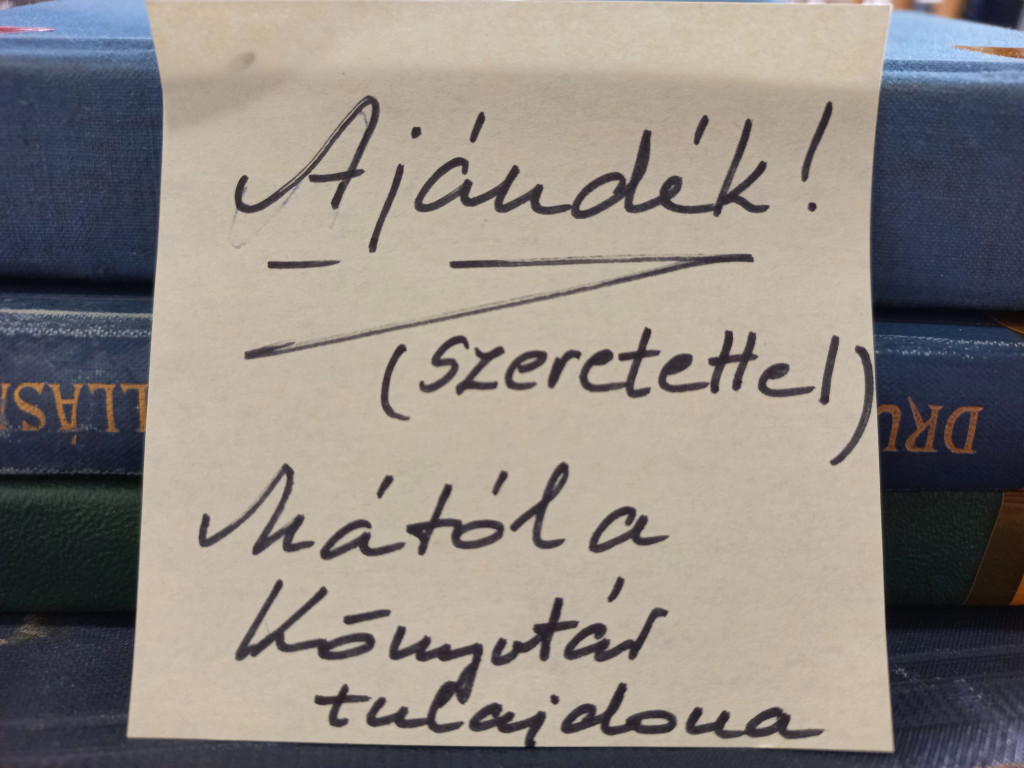 Ajándék!
(szeretettel)
Mától a
Könyvtár
tulajdona
LLÁS
DRU